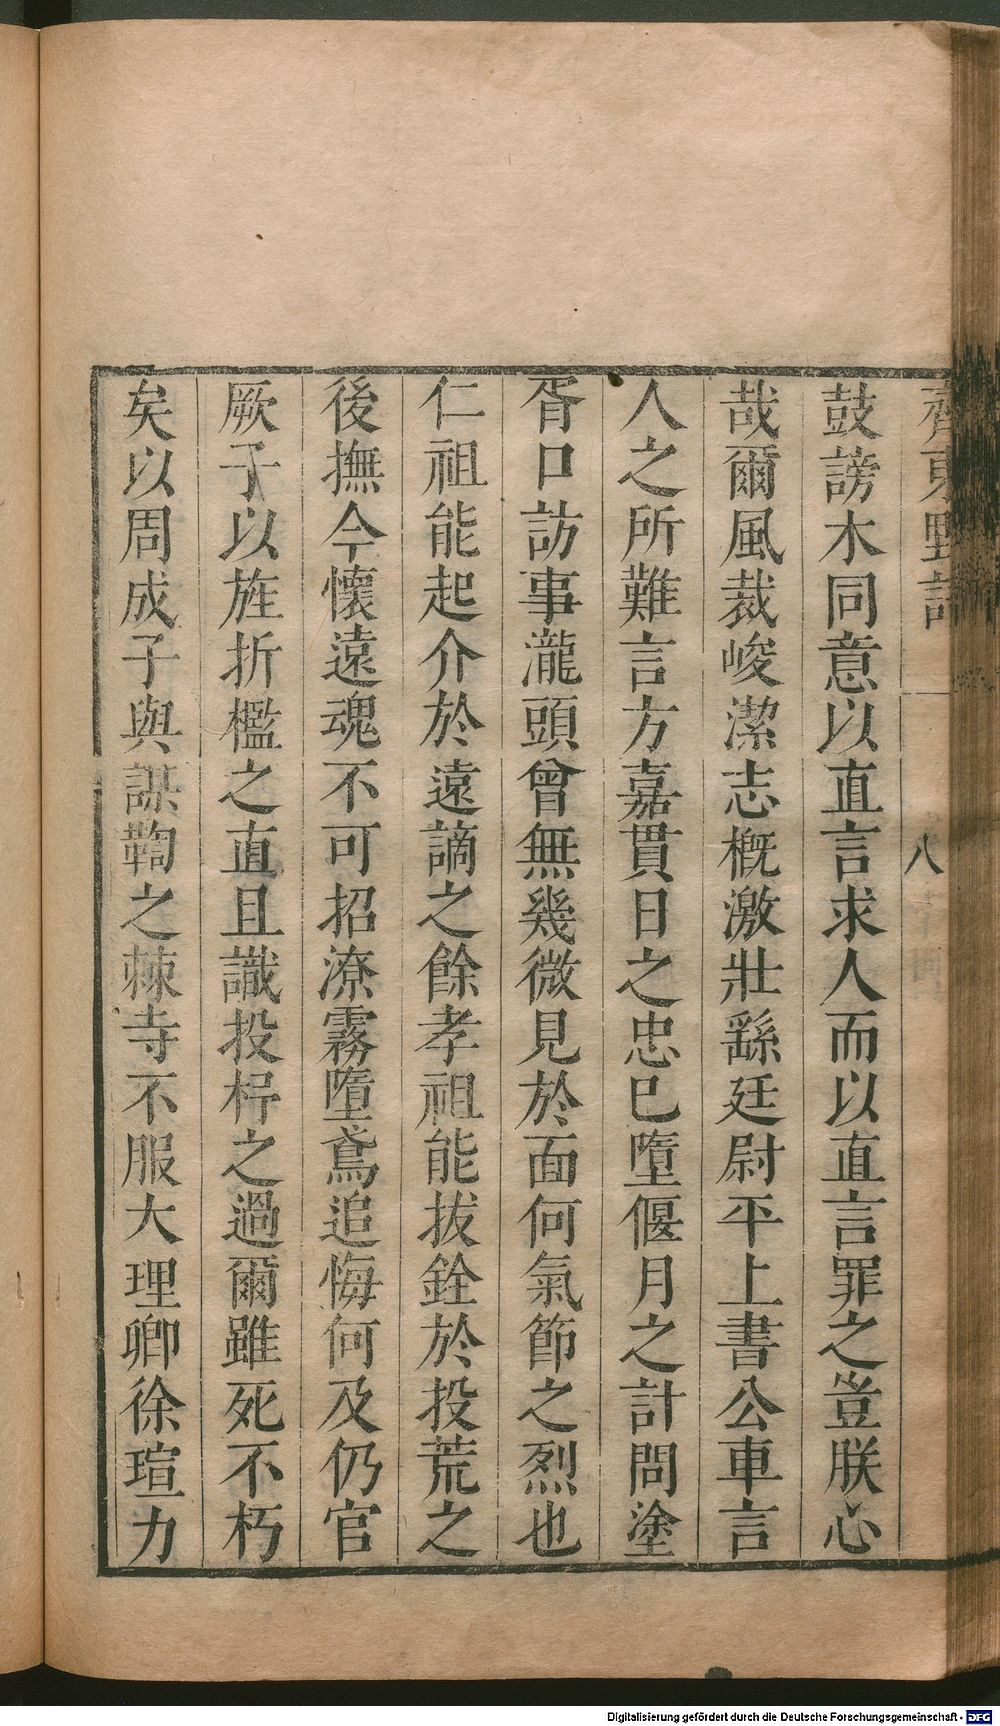 齊東野語
八
鼓謗木同意以直言求人而以直言罪之豈朕心
哉爾風裁峻潔志概激壯繇廷尉平上書公車言
人之所難言方嘉貫日之忠已墮偃月之計問塗
胥口訪事瀧頭曾無幾微見於面何氣節之烈也
仁祖能起介於遠謫之餘孝祖能拔銓於投荒之
後撫今懷遠魂不可招潦霧墮鳶追悔何及仍官
厥子以旌折檻之直且識投杼之過爾雖死不朽
矣以周成子與謀鞫之棘寺不服大理卿徐瑄力
Digitalisierung gefördert durch die Deutsche Forschungsgemeinschaft - DFG